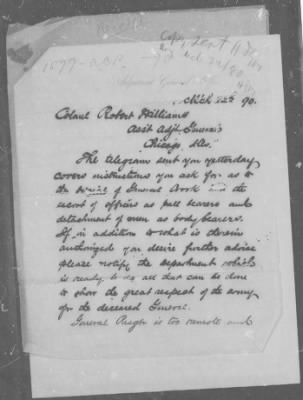 Copy sent
1099-A.C.P.-90
Mch 22d 90.
Colonel Robert Williams
Ass't Adj't General
Chicago, Ills.
The telegrams sent you yesterday
covers instructions you ask for as to
the burial of General Crook and the
escort of officers as pall bearers and
detachment of men as body bearers.
If in addition to what is therein
authorized you desire further advice
please notify the department which
is ready to do all that can be done
to show the great respect of the army
for the deceased General.
General Ruger is too remote and